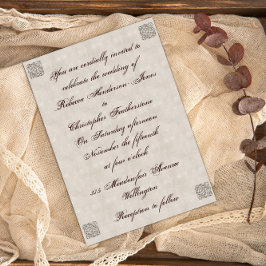 You are cordially invited to
celebrate the wedding of
Rebecca Henderson-Jones
to
Christopher Featherstone
On Saturday afternoon
November the fifteenth
at four o'clock
Meadowfair Avenue
Wellington
Reception to follow